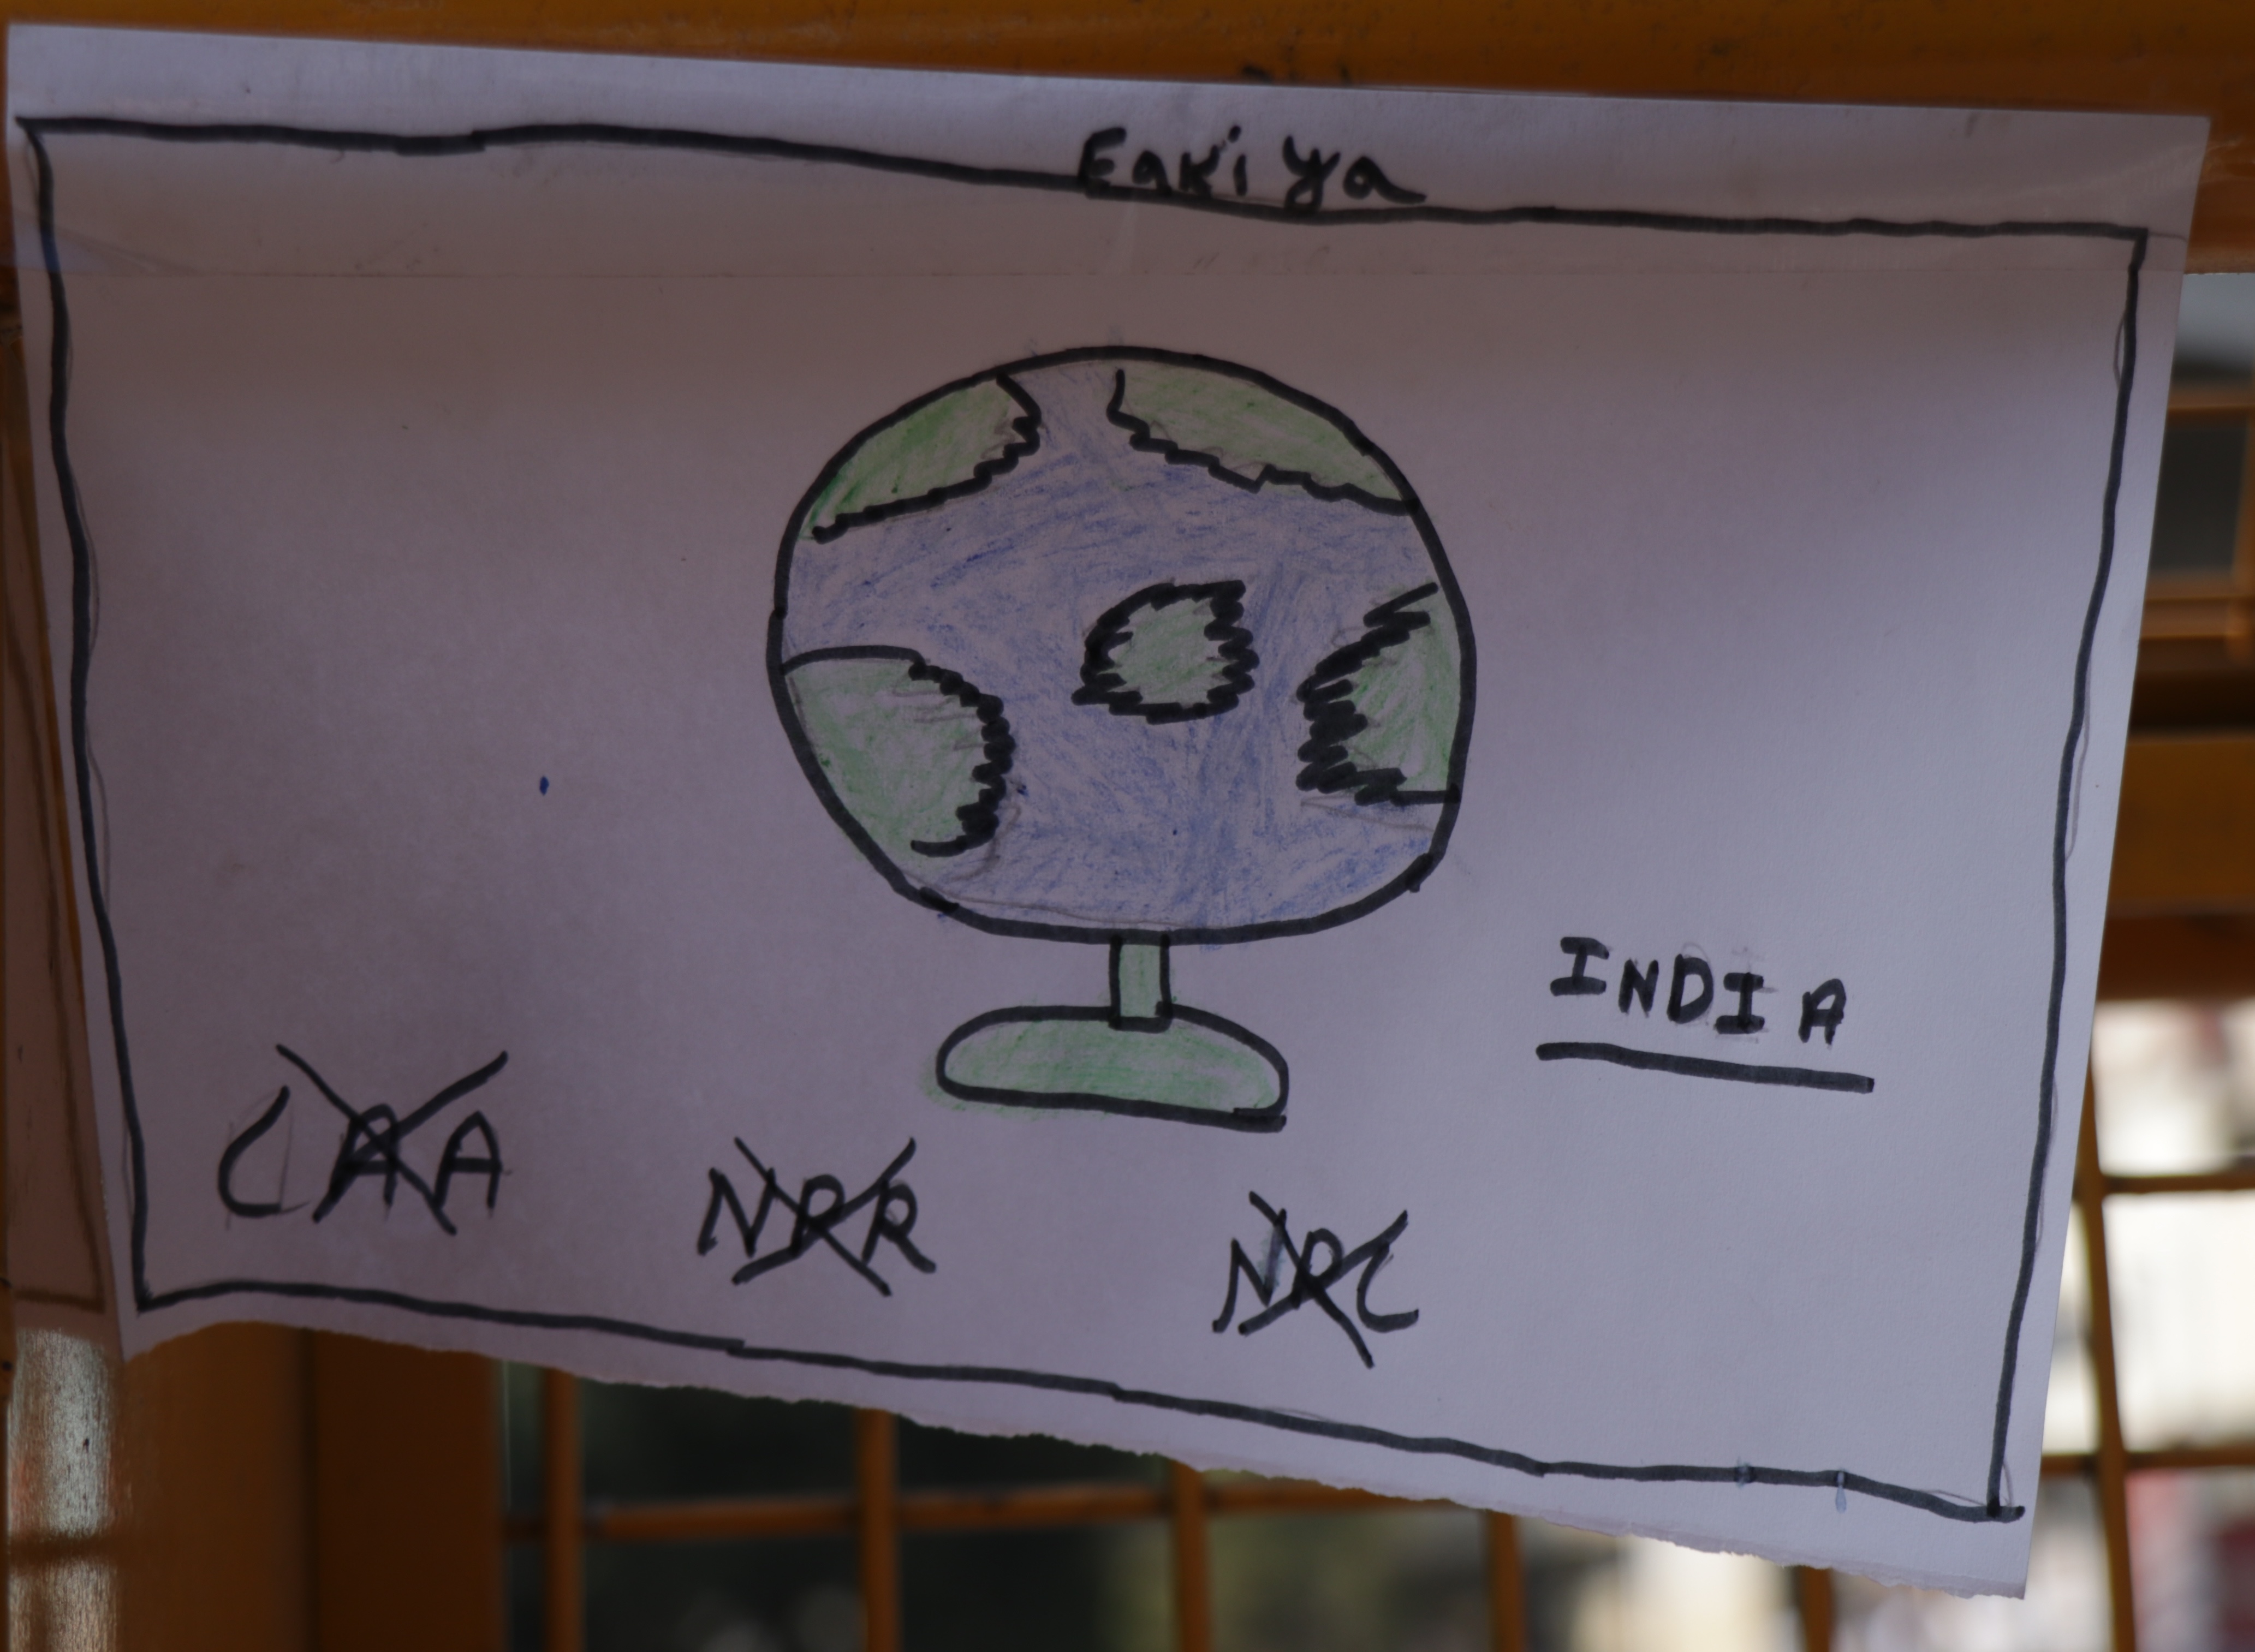 Eakiya
INDIA
CAA
NPR
NRC